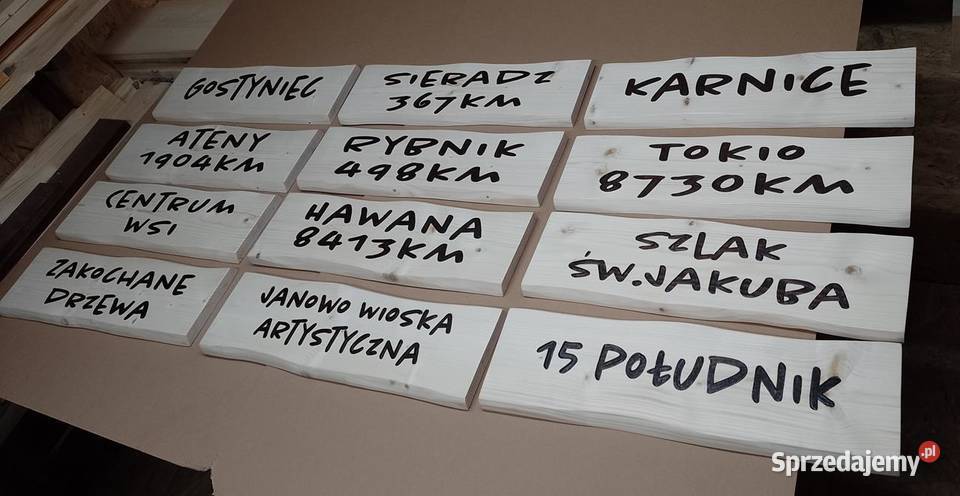 GOSTYNIEC
SIERADZ
367KM
KARNICE
ATENY
1904KM
RYBNIK
498KM
TOKIO
8730KM
CENTRUM
WSI
HAWANA
8413KM
SZLAK
ŚW.JAKUBA
ZAKOCHANE
DRZEWA
JANOWO WIOSKA
ARTYSTYCZNA
15 POŁUDNIK
Sprzedajemy.pl